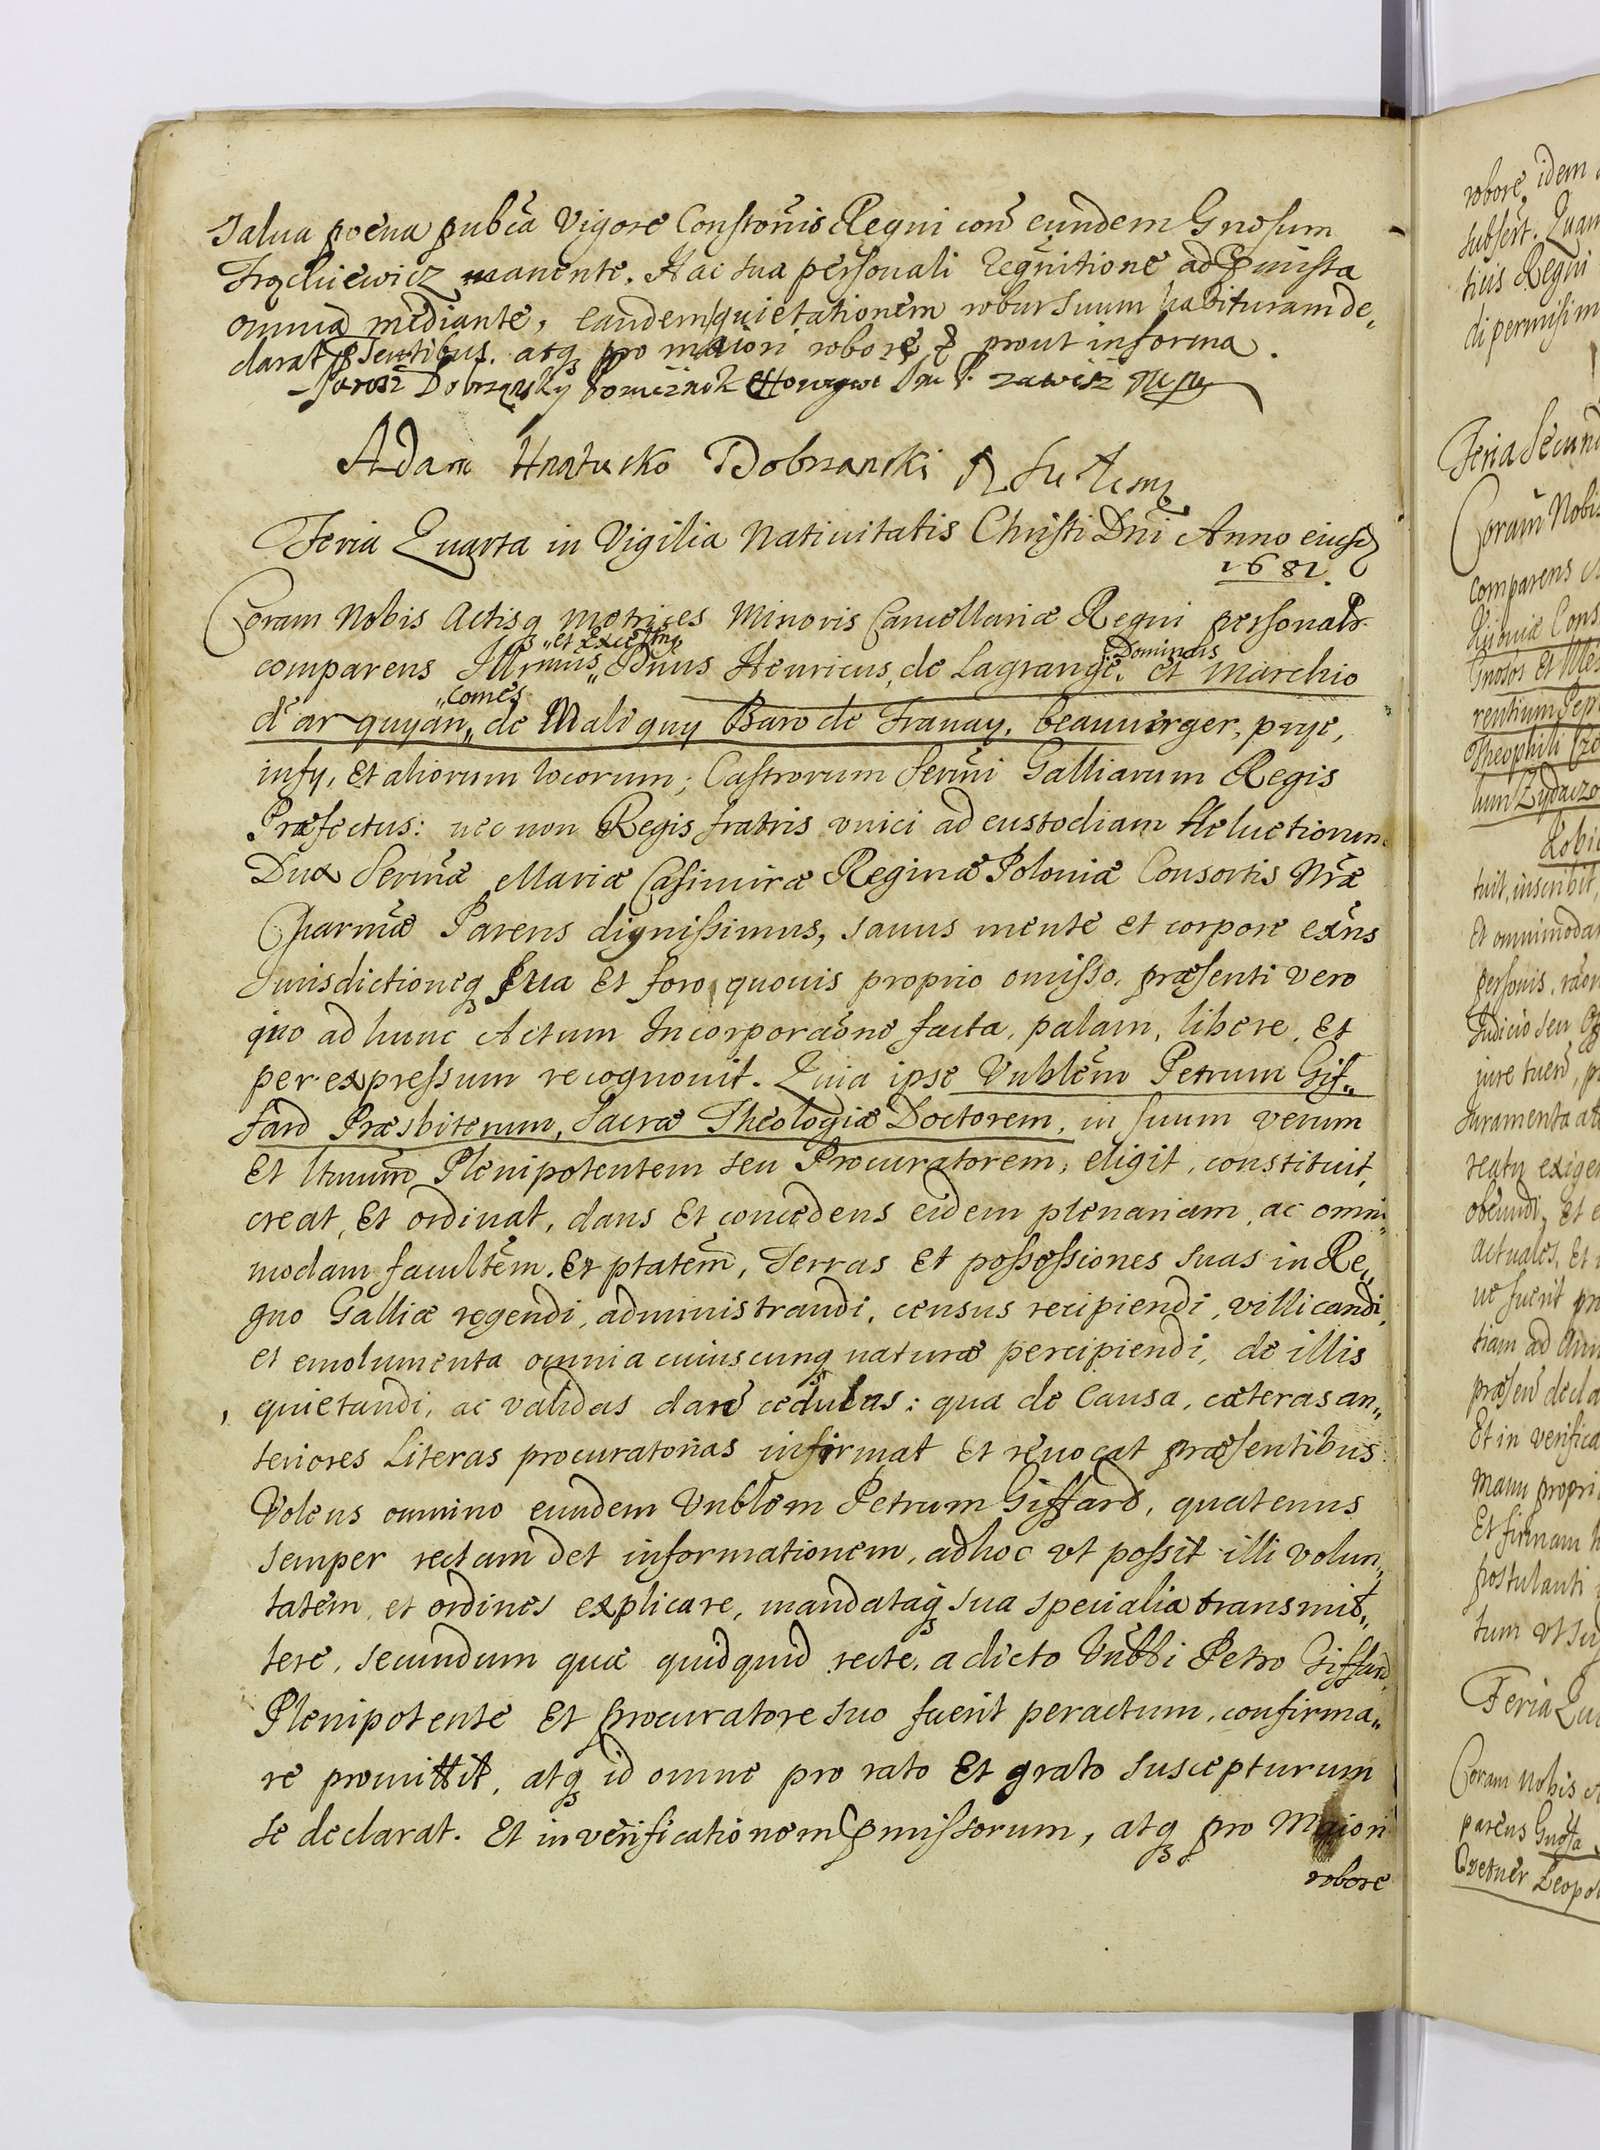 salua poena pub͠ca Vigore Const͠onis Regni con͠ eundem G͠nosum
Frąckiewicz manente. Hac sua personali Recg͠nitione ad p͠missa
omnia mediante, eandem quietationem robur suum habituram de„
clarat p͠sentibus. atq3 pro maiori robore & prout in forma.
Jarosz Dobrzansky
Adam Hnatusko Dobrzanski
Feria Quarta in Vigilia Natiuitatis Christi D͠ni Anno eiusd
1681.
Coram Nobis Actisq Metrices Minoris Cancellariæ Regni personalr
„et Exce͠ll͠mus
Dominus
comparens Ill͠rmus „D͠nus Henricus, de Lagrange. et Marchio
„Comes
d'arquyan „de Maliguy Baro de Franay. beauuerger, prye,
insy, Et aliorum locorum; Castrorum Ser͠mi Galliarum Regis
Præfectus: nec non Regis fratris vnici ad custodiam Heluetiorum
Dux Ser͠mæ Mariæ Casimiræ Reginæ Poloniæ Consortis N͠ræ
Char͠mæ Parens dignissimus, sanus mente et corpore ex͠ns
Jurisdictioneq3 sua Et foro quouis proprio omisso. præsenti vero
quo ad hunc Actum Incorpora͠one facta, palam, libere, Et
per expressum recognouit. Quia ipse V͠nbl͠em Petrum Gif„
fard Præsbiterum, Sacræ Theologiæ Doctorem, in suum verum
Et lt͠imum Plenipotentem seu Procuratorem, eligit, constituit,
creat, Et ordinat, dans Et concedens eidem plenariam, ac omni„
modam facult͠em. Et p͠tat͠em, Terras Et possessiones suas in Re„
gno Galliæ regendi, administrandi, census recipiendi, villicandi,
et emolumenta omnia cuiuscunq3 naturæ percipiendi, de illis
quietandi, ac validas dare cedulas: qua de Causa, cæteras an„
teriores Literas procuratorias infirmat Et reuocat præsentibus
Volens omnino eundem V͠nblem Petrum Giffard, quatenus
semper rectam det informationem, ad hoc vt possit illi volun„
tatem, et ordines explicare, mandataq3 sua specialia transmit„
tere, secundum quæ quidquid recte, a dicto V͠nbli Petro Giffard,
Plenipotente Et Procuratore suo fuerit peractum, confirma„
re promittit, atq3 id omne pro rato Et grato suscepturum
se declarat. Et in verificationem p͠missorum, atq3 pro Maiori
robore
robore, idem
Regni
Feria Secund
Coram Nobis
comparens
Theophili
tuit, inscribit,
Et omnimodam
personis
Judicio seu
Juramenta
actuales, Et
ue fuerit
tiam ad
Et in verifica
Manu propri
Et firmam
postulanti
Feria
Coram Nobis
parens